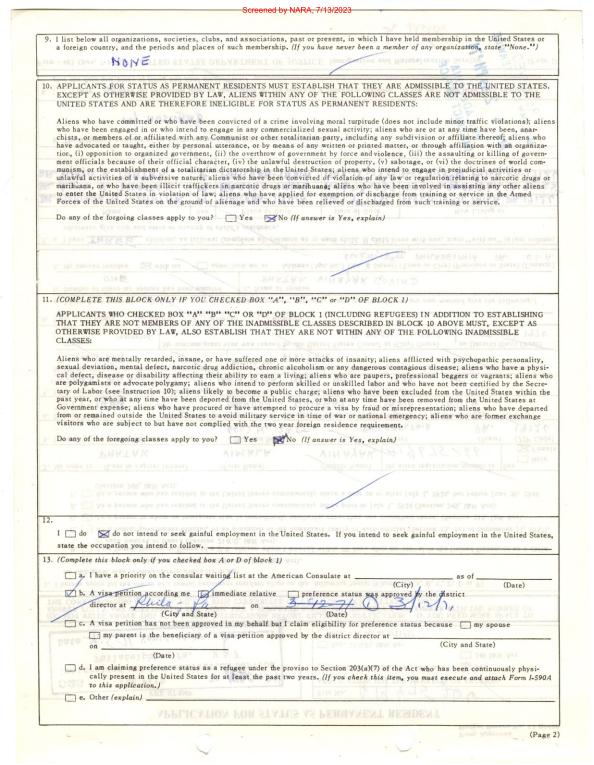 Screened by NARA, 7/13/2023
9. I list below all organizations, societies, clubs, and associations, past or present, in which I have held membership in the United States or
a foreign country, and the periods and places of such membership. (If you have never been a member of any organization, state "None.")
NONE
10. APPLICANTS FOR STATUS AS PERMANENT RESIDENTS MUST ESTABLISH THAT THEY ARE ADMISSIBLE TO THE UNITED STATES.
EXCEPT AS OTHERWISE PROVIDED BY LAW, ALIENS WITHIN ANY OF THE FOLLOWING CLASSES ARE NOT ADMISSIBLE TO THE
UNITED STATES AND ARE THEREFORE INELIGIBLE FOR STATUS AS PERMANENT RESIDENTS:
Aliens who have committed or who have been convicted of a crime involving moral turpitude (does not include minor traffic violations); aliens
who have been engaged in or who intend to engage in any commercialized sexual activity; aliens who are or at any time have been, anar-
chists, or members of or affiliated with any Communist or other totalitarian party, including any subdivision or affiliate thereof; aliens who
have advocated or taught, either by personal utterance, or by means of any written or printed matter, or through affiliation with an organiza-
tion, (i) opposition to organized government, (ii) the overthrow of government by force and violence, (iii) the assaulting or killing of govern-
ment officials because of their official character, (iv) the unlawful destruction of property, (v) sabotage, or (vi) the doctrines of world com-
munism, or the establishment of a totalitarian dictatorship in the United States; aliens who intend to engage in prejudicial activities or
unlawful activities of a subversive nature; aliens who have been convicted of violation of any law or regulation relating to narcotic drugs or
marihuana, or who have been illicit traffickers in narcotic drugs or marihuana; aliens who have been involved in assisting any other aliens
to enter the United States in violation of law; aliens who have applied for exemption or discharge from training or service in the Armed
Forces of the United States on the ground of alienage and who have been relieved or discharged from such training or service.
Do any of the forgoing classes apply to you? Yes No (If answer is Yes, explain)
11. (COMPLETE THIS BLOCK ONLY IF YOU CHECKED BOX "A", "B", "C" or "D" OF BLOCK 1)
APPLICANTS WHO CHECKED BOX "A" "B" "C" OR "D" OF BLOCK 1 (INCLUDING REFUGEES) IN ADDITION TO ESTABLISHING
THAT THEY ARE NOT MEMBERS OF ANY OF THE INADMISSABLE CLASSES DESCRIBED IN BLOCK 10 ABOVE MUST, EXCEPT AS
OTHERWISE PROVIDED BY LAW, ALSO ESTABLISH THAT THEY ARE NOT WITHIN ANY OF THE FOLLOWING INADMISSABLE
CLASSES:
Aliens who are mentally retarded, insane, or have suffered one or more attacks of insanity; aliens afflicted with psychopathic personality,
sexual deviation, mental defect, narcotic drug addiction, chronic alcoholism or any dangerous contagious disease; aliens who have a physi-
cal defect, disease or disability affecting their ability to earn a living; aliens who are paupers, professional beggars or vagrants; aliens who
are polygamists or advocate polygamy; aliens who intend to perform skilled or unskilled labor and who have not been certified by the Secre-
tary of Labor (see Instruction 10); aliens likely to become a public charge; aliens who have been excluded from the United States within the
past year, or who at any time have been deported from the United States, or who at any time have been removed from the United States at
Government expense; aliens who have procured or have attempted to procure a visa by fraud or misrepresentation; aliens who have departed
from or remained outside the United States to avoid military service in time of war or national emergency; aliens who are former exchange
visitors who are subject to but have not complied with the two year foreign residence requirement.
Do any of the foregoing classes apply to you? Yes No (If answer is Yes, explain)
12.
I do do not intend to seek gainful employment in the United States. If you intend to seek gainful employment in the United States,
state the occupation you intend to follow.
13. (Complete this block only if you checked box A or D of block 1)
a. I have a priority on the consular waiting list at the American Consulate at as of
(City) (Date)
b. A visa petition according me immediate relative preference status was approved by the district
director at Phila - Pa on 3-12-71 ① 3/12/71
(City and State) (Date)
c. A visa petition has not been approved in my behalf but I claim eligibility for preference status because my spouse
my parent is the beneficiary of a visa petition approved by the district director at
(City and State)
on
(Date)
d. I am claiming preference status as a refugee under the proviso to Section 203(a)(7) of the Act who has been continuously physi-
cally present in the United States for at least the past two years. (If you check this item, you must execute and attach Form I-590A
to this application.)
e. Other (explain)
(Page 2)